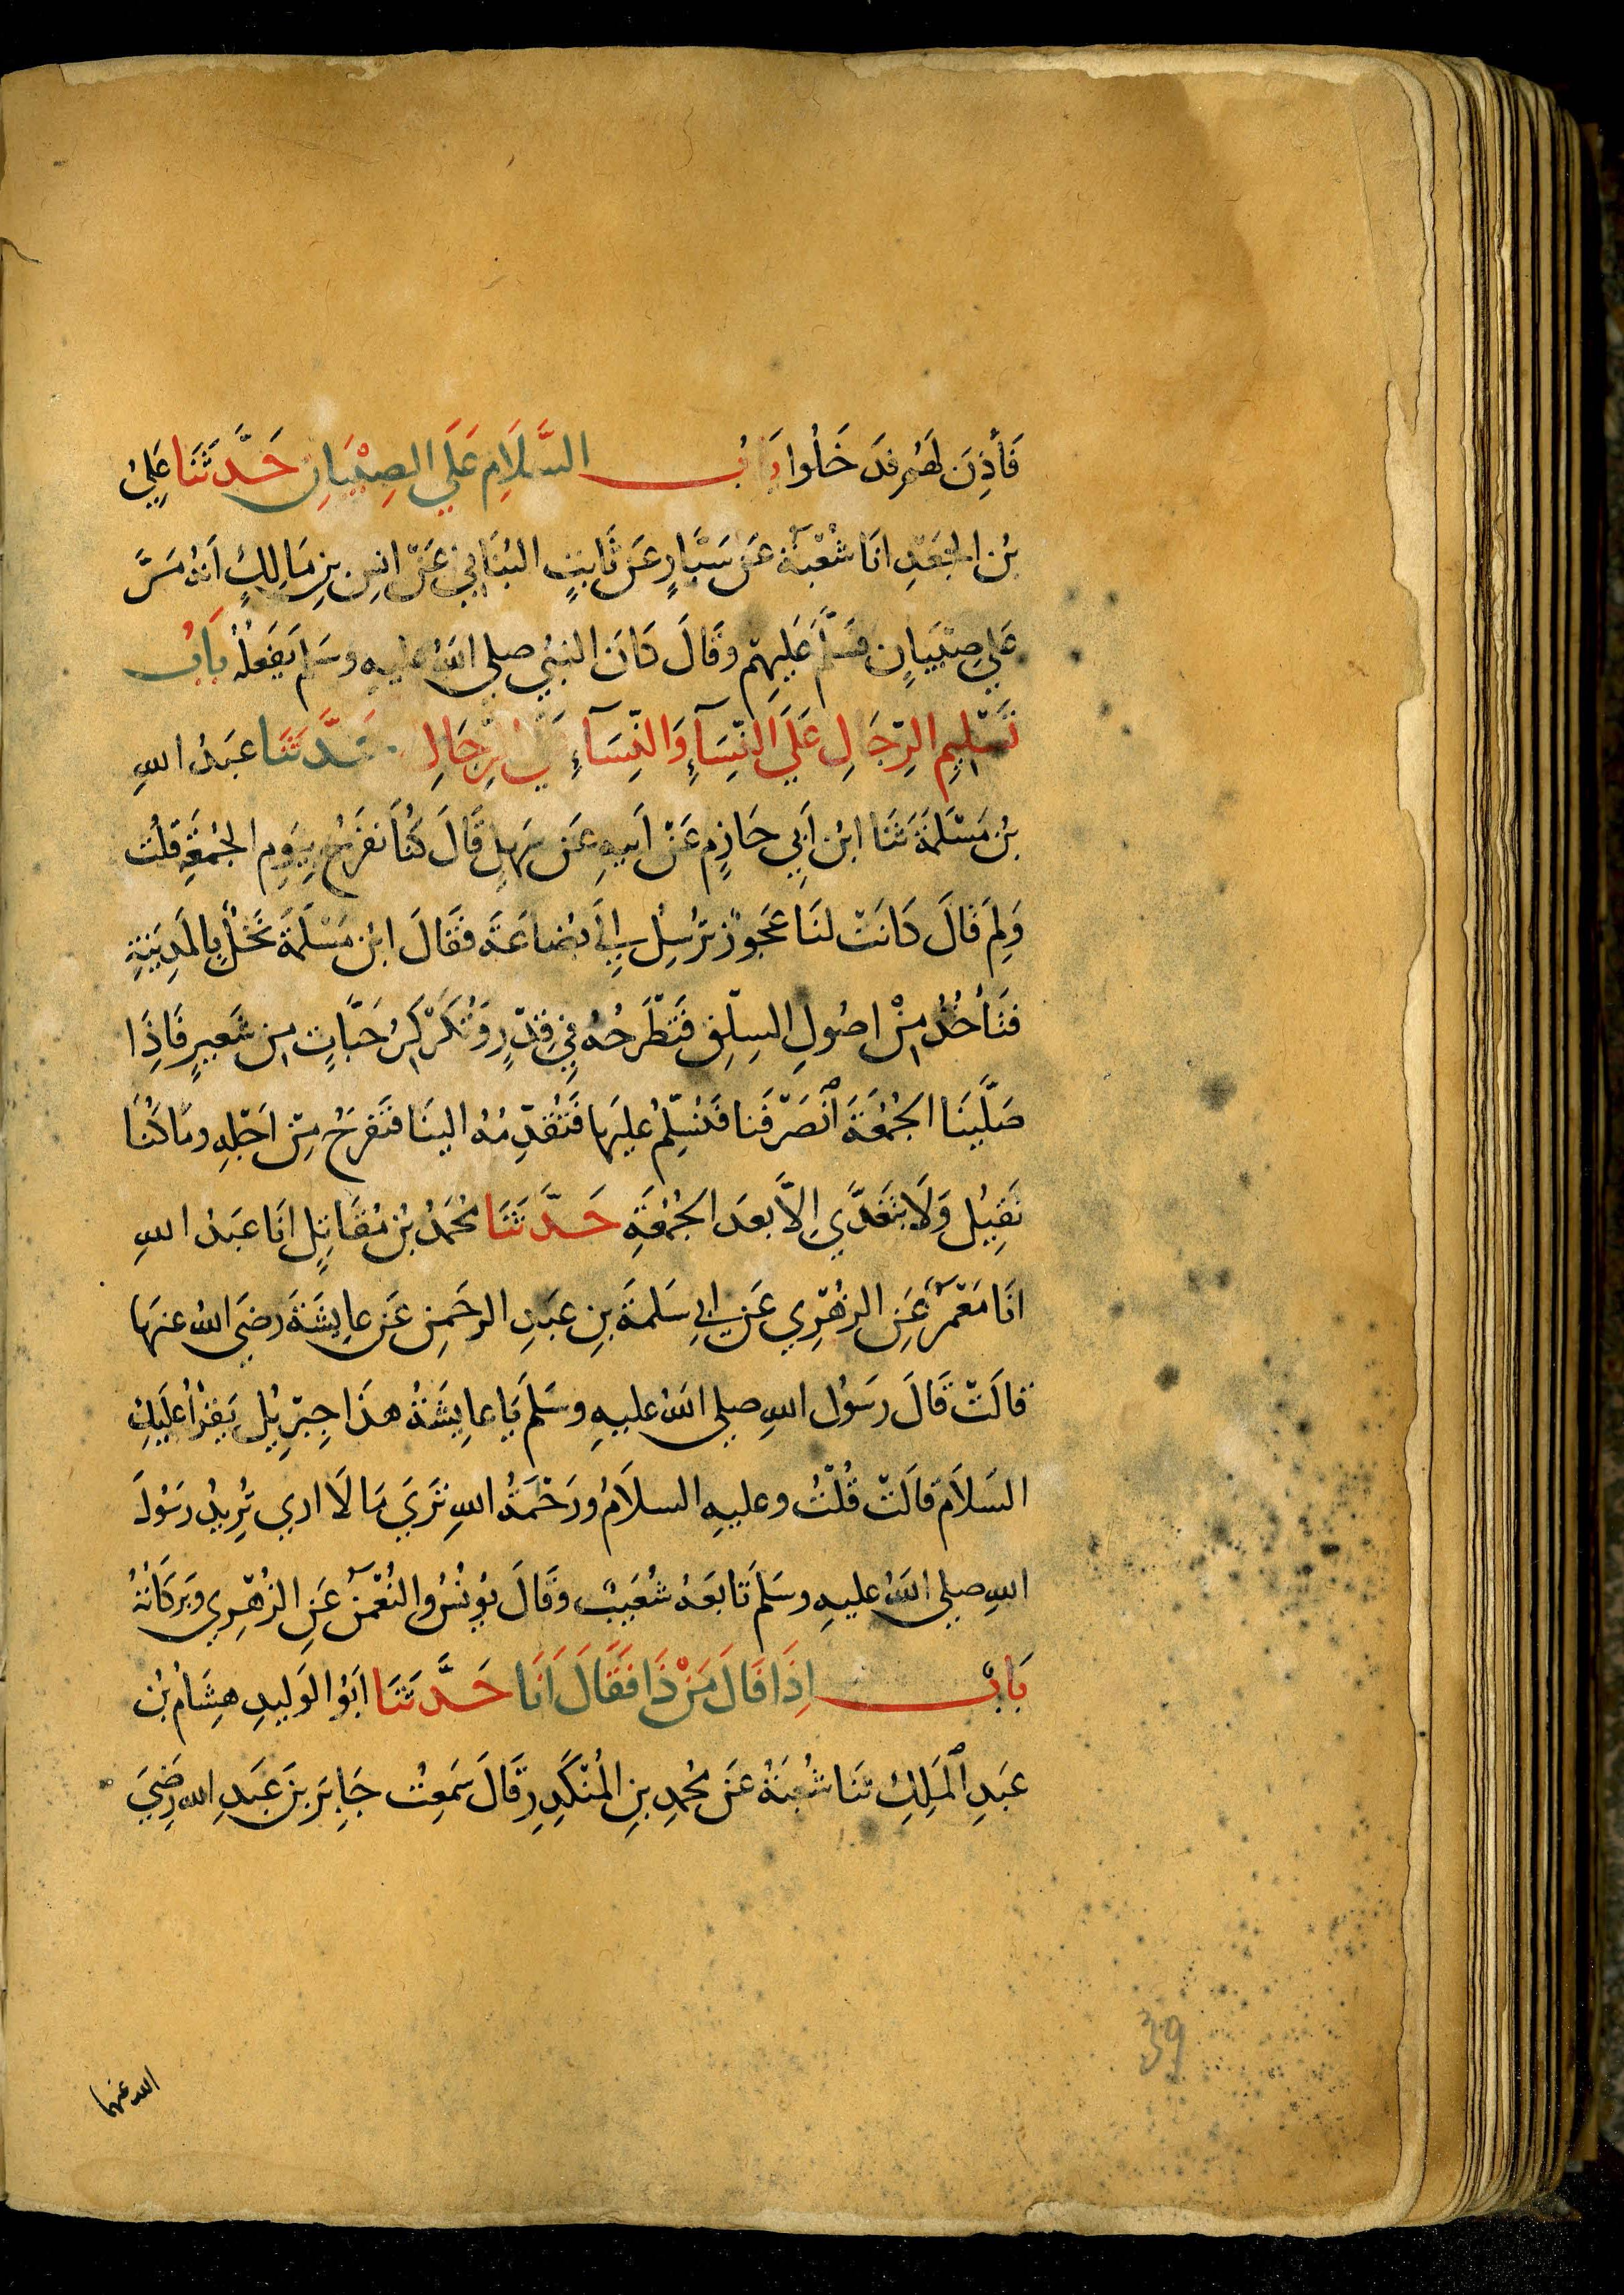 فَأُذِنَ لَهُم فَدَخَلُوا بَابُ السَّلَامِ عَلَي الصِبْيَانِ حَدَّثَنَا عَلِيُ
بْنُ الجَعْدِ انَا شُعْبَةُ عَن سَيَّارٍ عَن ثَابِتٍ البُنَانِي عَنْ انسِ بنِ مَالِكٍ انَهُ مَرَّ
عَلي صِبْيَانٍ فَسَلَّمَ عَليهِمْ وقَالَ كَانَ النبيُ صلي اللهُ عليهِ وسَلم يَفعَلُهُ بَابُ
تَسْلِيمِ الرِّجَالِ عَلَي النِّسَآءِ وَالنِّسَآءِ عَلَي الرِّجَالِ حَدَّثَنَا عَبدُ اللهِ
بْنُ مَسْلَمَةَ ثَنَا ابْنُ أَبِي حَازِمٍ عَنْ اَبيهِ عَن سَهلٍ قَالَ كُنَّا نَفرَحُ بِيَومِ الجُمُعَةِ قلْتُ
وَلِمَ قَالَ كَانَتْ لنَا عَجُوزٌ تُرْسِلُ إِلَي بُضَاعَةَ فقَالَ ابْنُ مَسْلَمَةَ نَخْلٌ بِالمَدِينَةِ
فتَأخُذُ مِنْ اصُولِ السِلْقِ فَتَطْرَحُهُ فِي قِدْرٍ وَتُكَرْكِرُ حَبَّاتٍ مِن شَعِيرٍ فَاِذَا
صَلَّينَا الجُمُعَةَ انْصَرَفْنَا فَنُسَلِّمُ عليهَا فَتُقَدِّمُهُ الينَا فَنَفرَحُ مِنْ اَجْلِهِ ومَا كُنَّا
نَقِيلُ وَلَا نَتَغَدَّي اِلاَّ بعدَ الجُمُعَةِ حَدَّثَنَا مُحَمدُ بْنُ مُقَاتِلٍ انَا عَبدُ اللهِ
انَا مَعْمَرٌ عَنِ الزهْرِي عَن ابي سَلمةَ بنِ عبدِ الرحَمنِ عَن عايِشَةَ رضيَ الله عنهَا
قالَتْ قَالَ رسَوُل اللهِ صلي اللهُ عليهِ وسَلَم يَا عايِشَةُ هذَا جِبْرِيْلُ يَقْرَأُ عَليَكِ
السَلاَمَ قالَتْ قُلْتُ وعليهِ السلاَمُ ورَحْمَةُ اللهِ تَرَي مَا لَا اري تُرِيدُ رسَوُلَ
اللهِ صلي اللهُ عليهِ وسَلم تَابعَهُ شُعَيبٌ وقَالَ يُونُسُ والنُعْمنُ عَنِ الزُهْرِي وبَرَكَاتُهُ
بَابُ اِذَا قَالَ مَنْ ذَا فَقَالَ اَنَا حَدَّثَنَا ابَوُ الوَليدِ هِشَامُ بْنُ
عَبدِ الْمَلِكِ ثنَا شُعْبَةُ عَن مُحمدِ بنِ المُنْكَدِرِ قَالَ سَمِعْتُ جَابِرَ بنَ عَبدِ الله رَضِيَ
الله عنهما
39